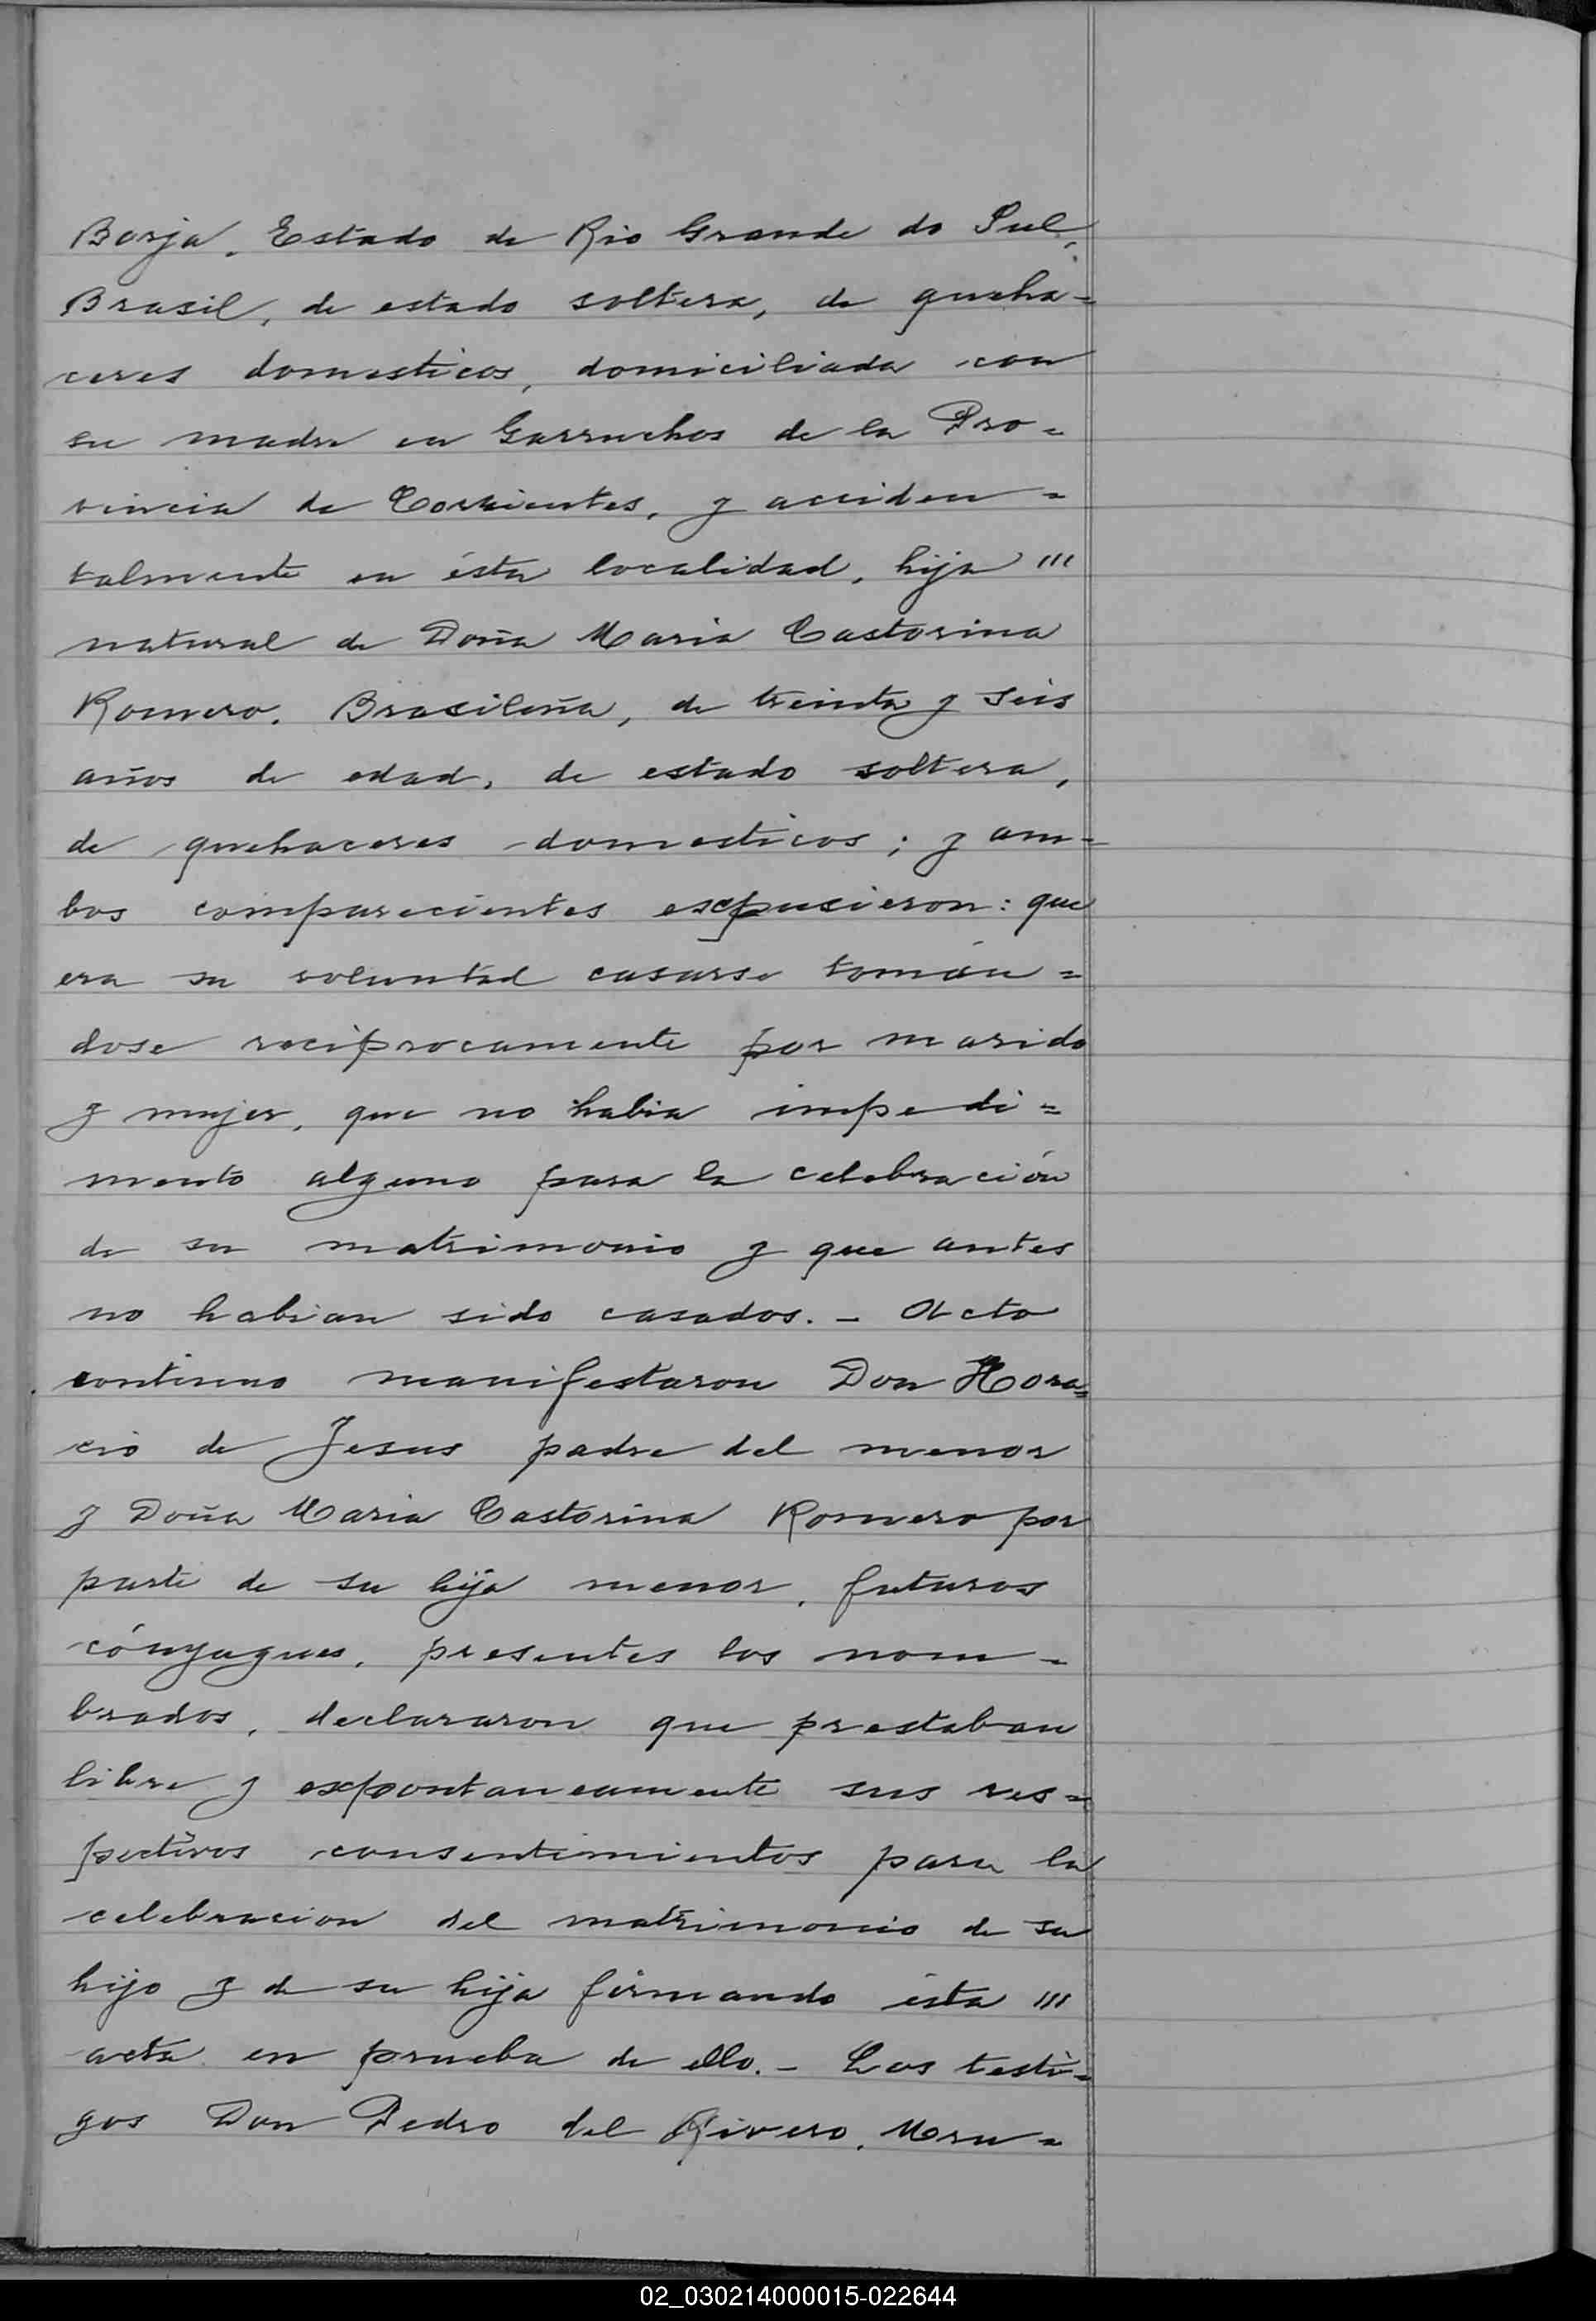 Borja, Estado de Rio Grande do Sul,
Brasil, de estado soltera, de queha=
ceres domesticos, domiciliada con
su madre en Garruchos de la Pro=
vincia de Corrientes, y acciden=
talmente en ésta localidad, hija "'
natural de Doña Maria Castorina
Romero, Brasileña, de treinta y seis
años de edad, de estado soltera,
de quehaceres domesticos; y am=
bos comparecientes expusieron: que
era su voluntad casarse tomán=
dose reciprocamente por marido
y mujer, que no habia impedi=
mento alguno para la celebración
de su matrimonio y que antes
no habian sido casados. - Acto
continuo manifestaron Don Hora=
cio de Jesus padre del menor
y Doña Maria Castorina Romero por
parte de su hija menor, futuros
cónyugues, presentes los nom=
brados, declararon que prestaban
libre y expontaneamente sus res=
pectivos consentimientos para la
celebracion del matrimonio de su
hijo y de su hija firmando ésta "'
acta en prueba de ello. - Los testi=
gos Don Pedro del Rivero, Uru=
02_030214000015-022644